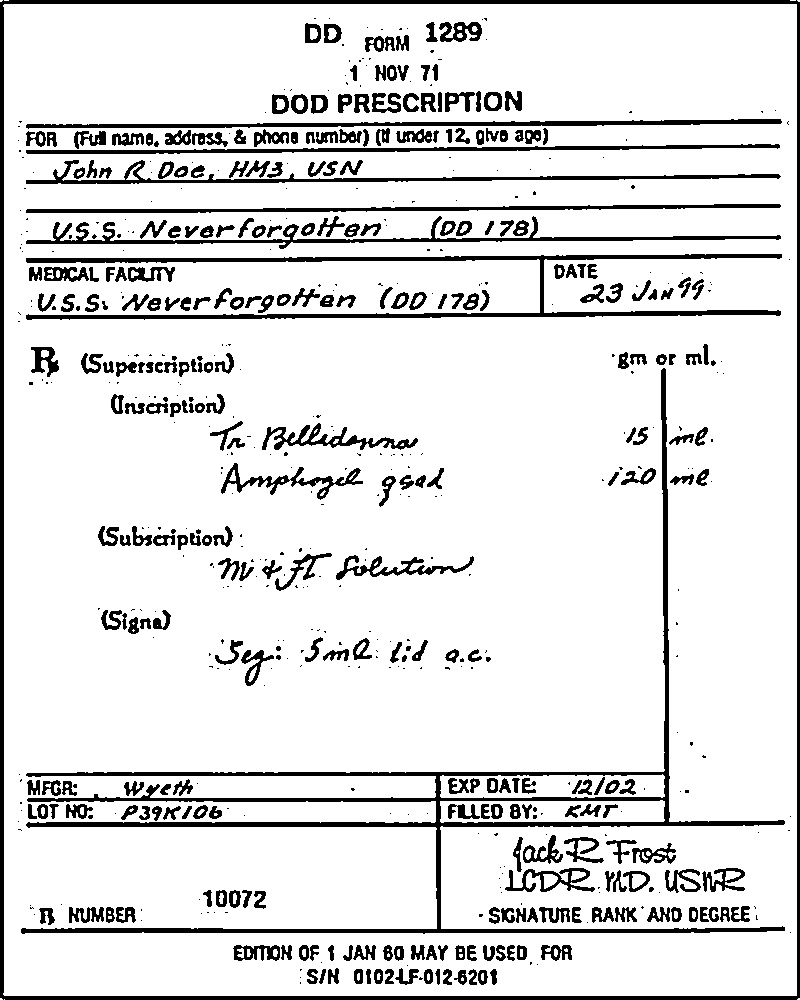 DD FORM 1289
1 NOV 71
DOD PRESCRIPTION
FOR (Full name, address, & phone number) (If under 12, give age)
John R. Doe, HM3, USN
U.S.S. Neverforgotten (DD 178)
MEDICAL FACILITY
DATE
U.S.S. Neverforgotten (DD 178)
23 JAN 99
℞ (Superscription)
gm or ml.
(Inscription)
Tr Belladonna 15 ml.
Amphogel qsad 120 ml
(Subscription)
M & FT Solution
(Signa)
Sig: 5ml tid a.c.
MFGR: Wyeth
EXP DATE: 12/02
LOT NO: P39K106
FILLED BY: KMT
Jack R Frost
LCDR MD. USNR
10072
℞ NUMBER
SIGNATURE RANK AND DEGREE
EDITION OF 1 JAN 60 MAY BE USED FOR
S/N 0102-LF-012-6201